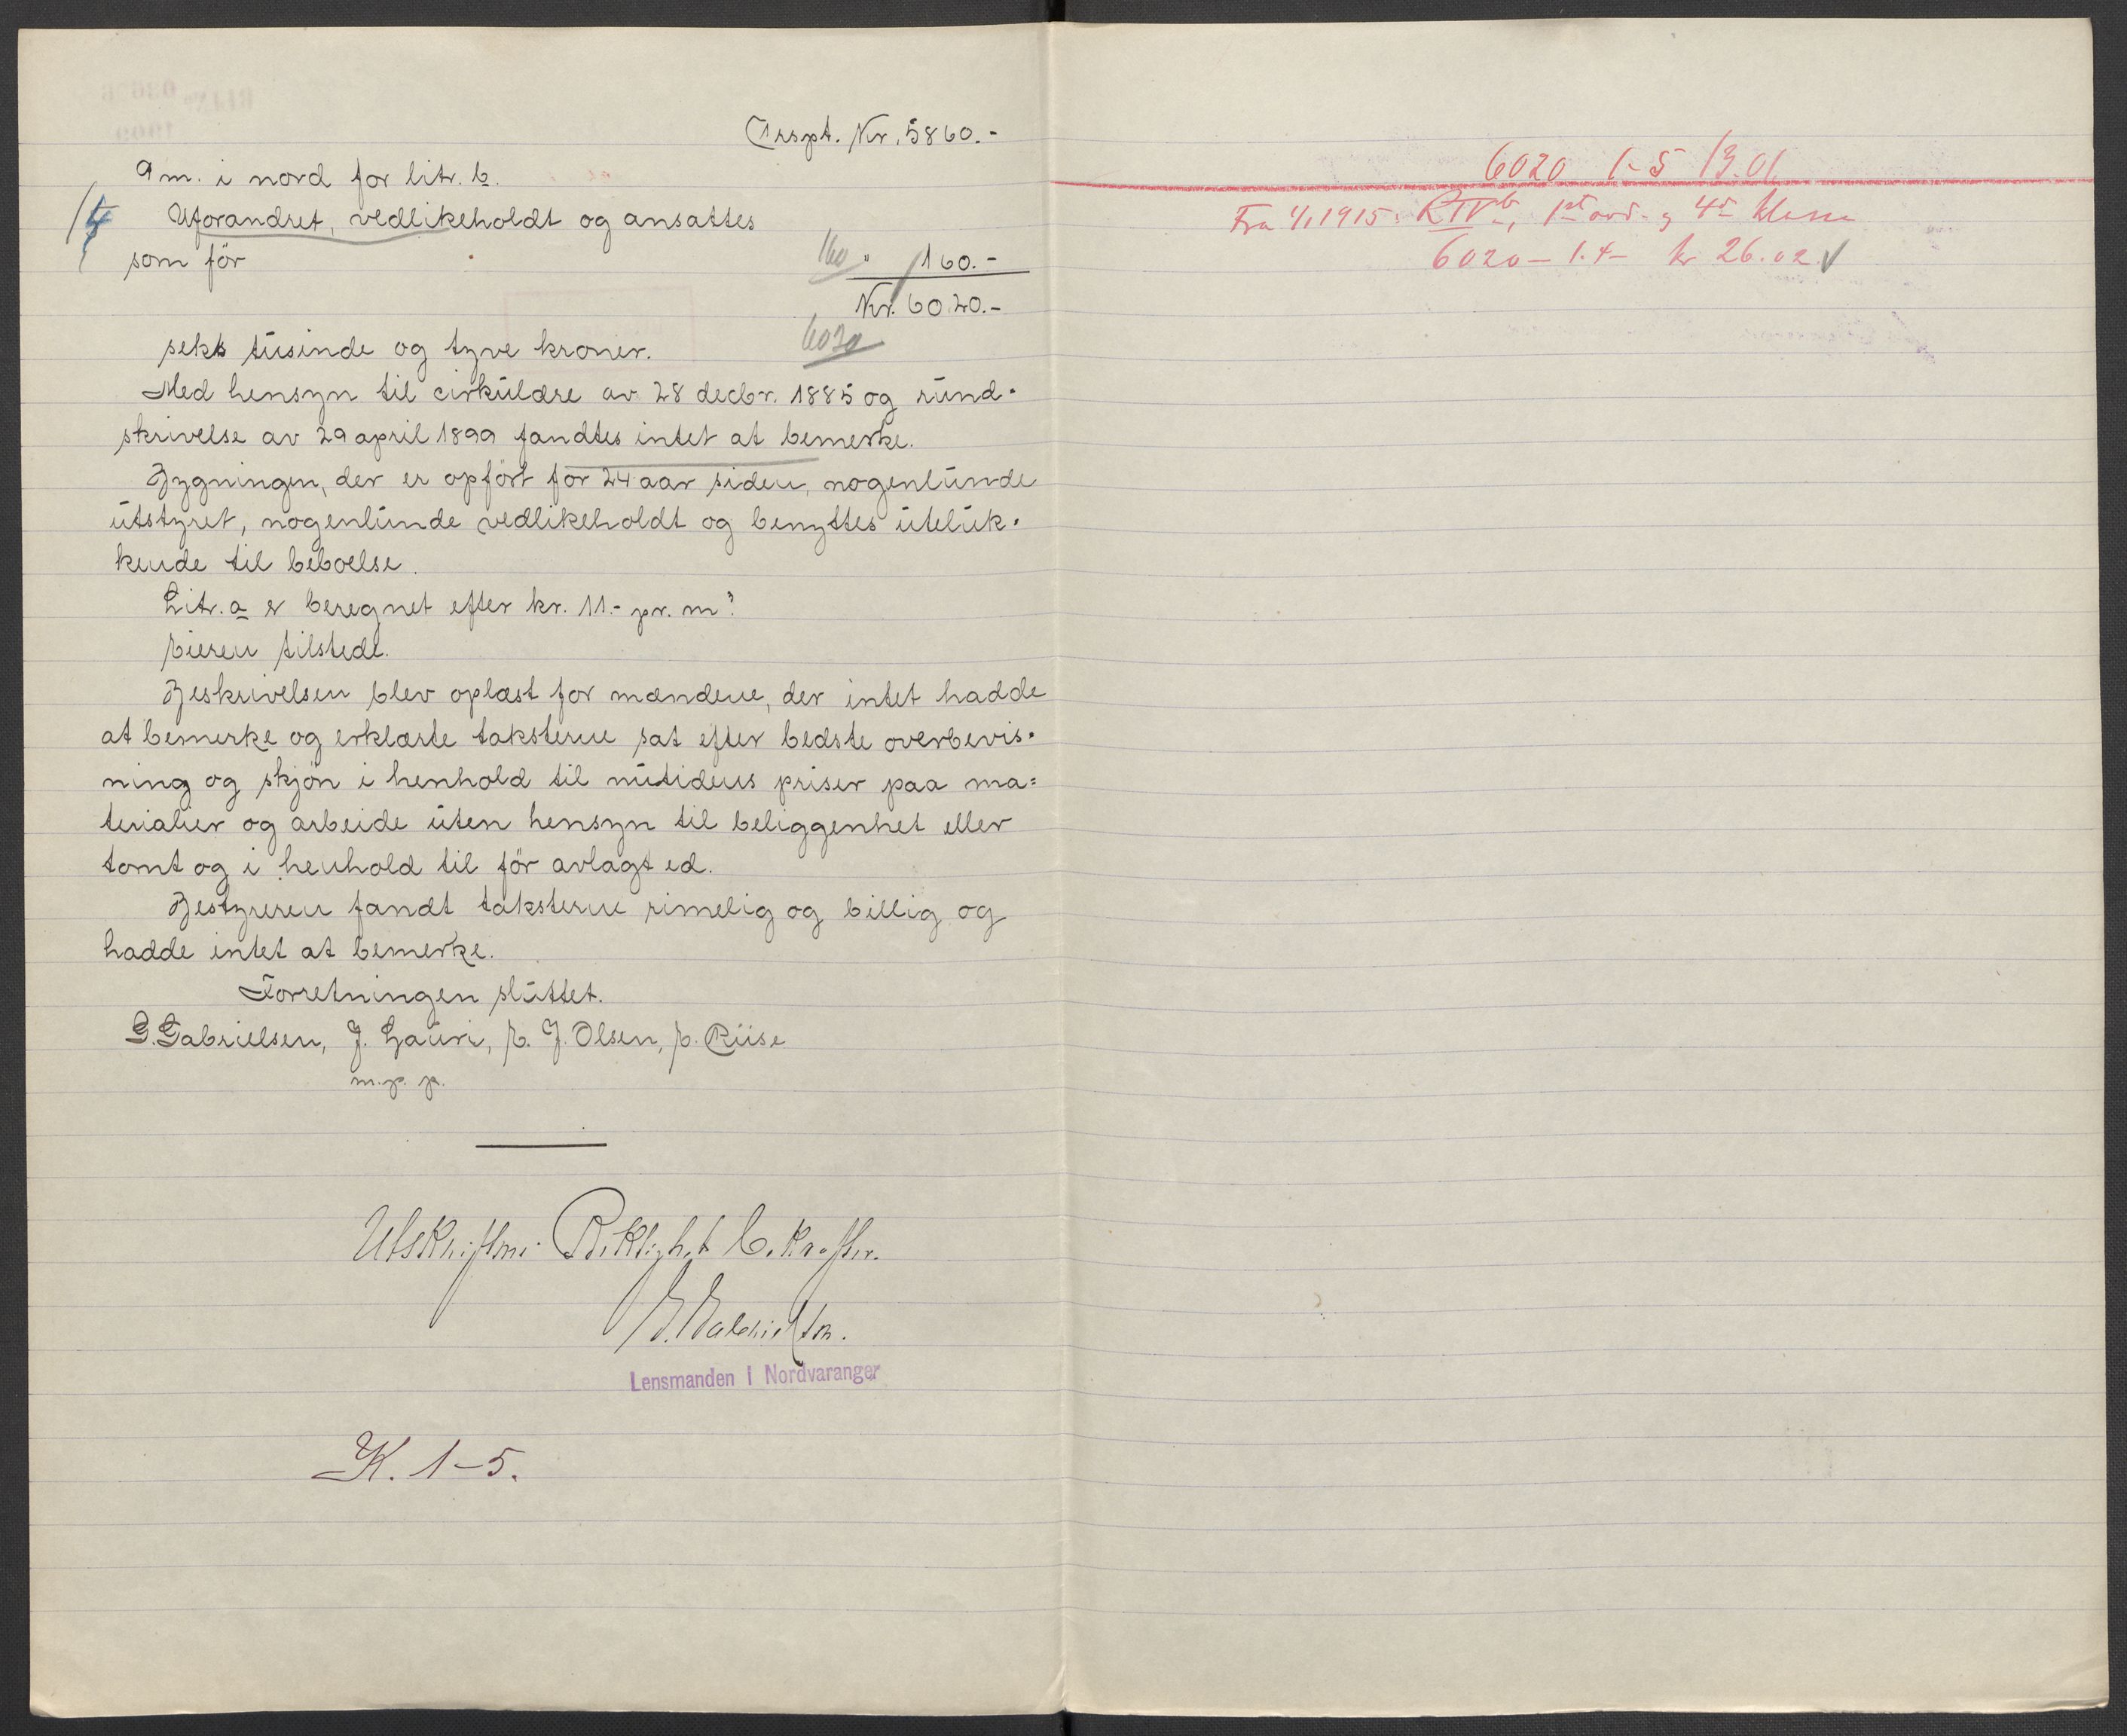 Trspt. Kr. 5860.-
9 m. i nord for litr. b.
Uforandret, vedlikeholdt og ansattes
som för
160 " 160.-
Kr. 6020.-
6020
seks tusinde og tyve kroner.
Med hensyn til cirkulære av 28 decbr. 1885 og rund-
skrivelse av 29 april 1899 fandtes intet at bemerke.
Bygningen, der er opfört for 24 aar siden, nogenlunde
utstyret, nogenlunde vedlikeholdt og benyttes uteluk-
kende til beboelse.
Litr. a er beregnet efter kr. 11.- pr. m².
Eieren tilstede.
Beskrivelsen blev oplæst for mændene, der intet hadde
at bemerke og erklærte taksterne sat efter bedste overbevis-
ning og skjön i henhold til nutidens priser paa ma=
terialier og arbeide uten hensyn til beliggenhet eller
tomt og i henhold til för avlagt ed.
Bestyreren fandt taksterne rimelig og billig og
hadde intet at bemerke.
Forretningen sluttet.
G. Gabrielsen, J. Lauri, E. J. Olsen, E. Riise
m. p. p.
Utskriftens Riktighet bekræfter.
G. Gabrielsen.
Lensmanden i Nordvaranger
K. 1-5.
6020 1-5 13.01
Fra 1/1 1915: R IV b, 1ste avd. og 4de klasse
6020 - 1.4 - kr 26.02 ✓